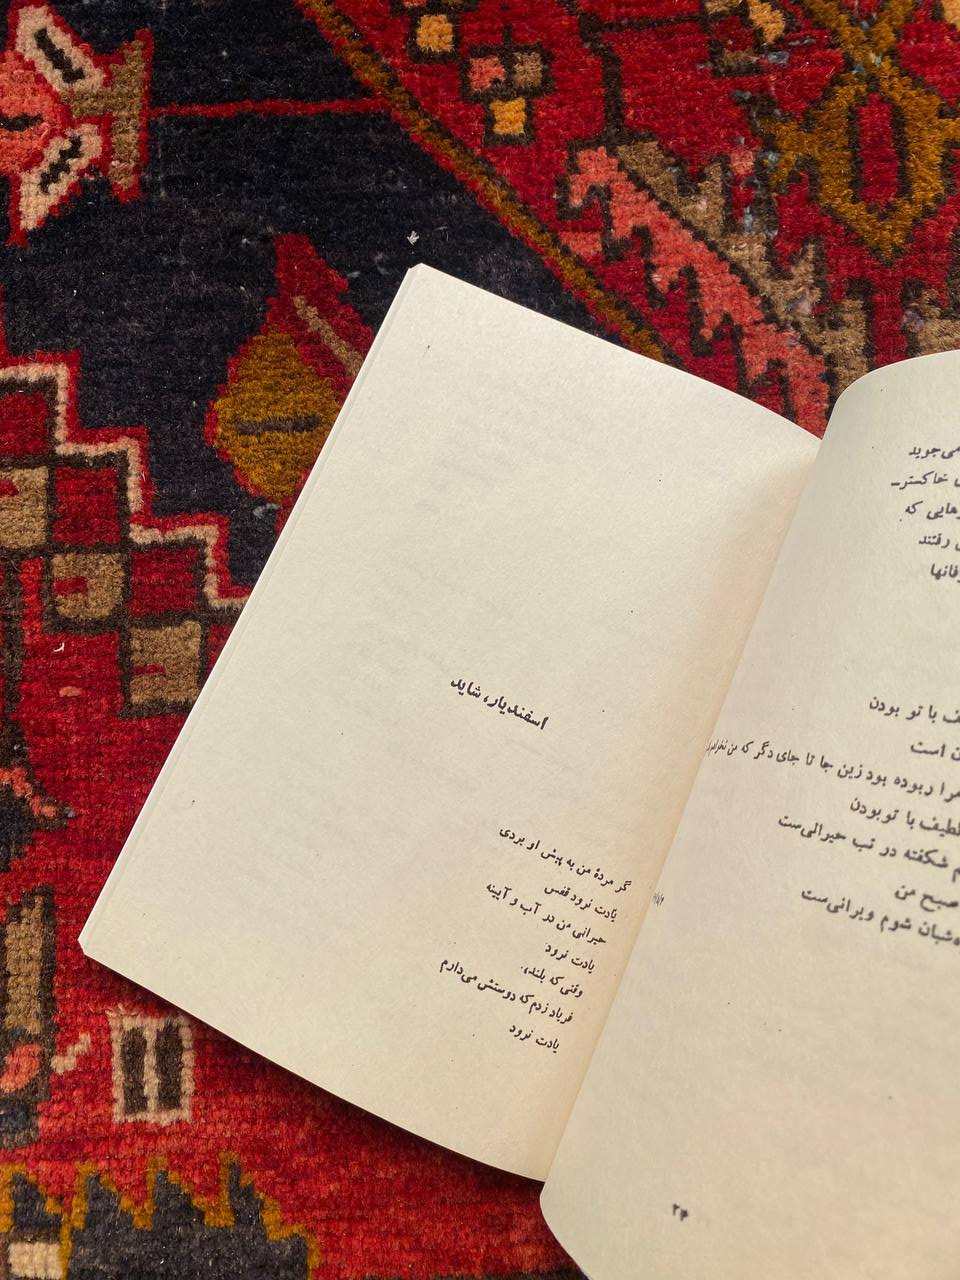 اسفندیار، شاید
گر مردهٔ من به پیش او بردی
یادت نرود قفس
حیرانی من در آب و آیینه
یادت نرود
وقتی که بلند،
فریاد زدم که دوستش می‌دارم
یادت نرود
می‌جوید
خاکستر–
هایی که
رفتند
با تو بودن
است
مرا ربوده بود زین جا تا جای دگر که من نخواهم
لطیف با تو بودن
شکفته در تب حیرانی‌ست
صبح من
شبان شوم ویرانی‌ست
۲۴